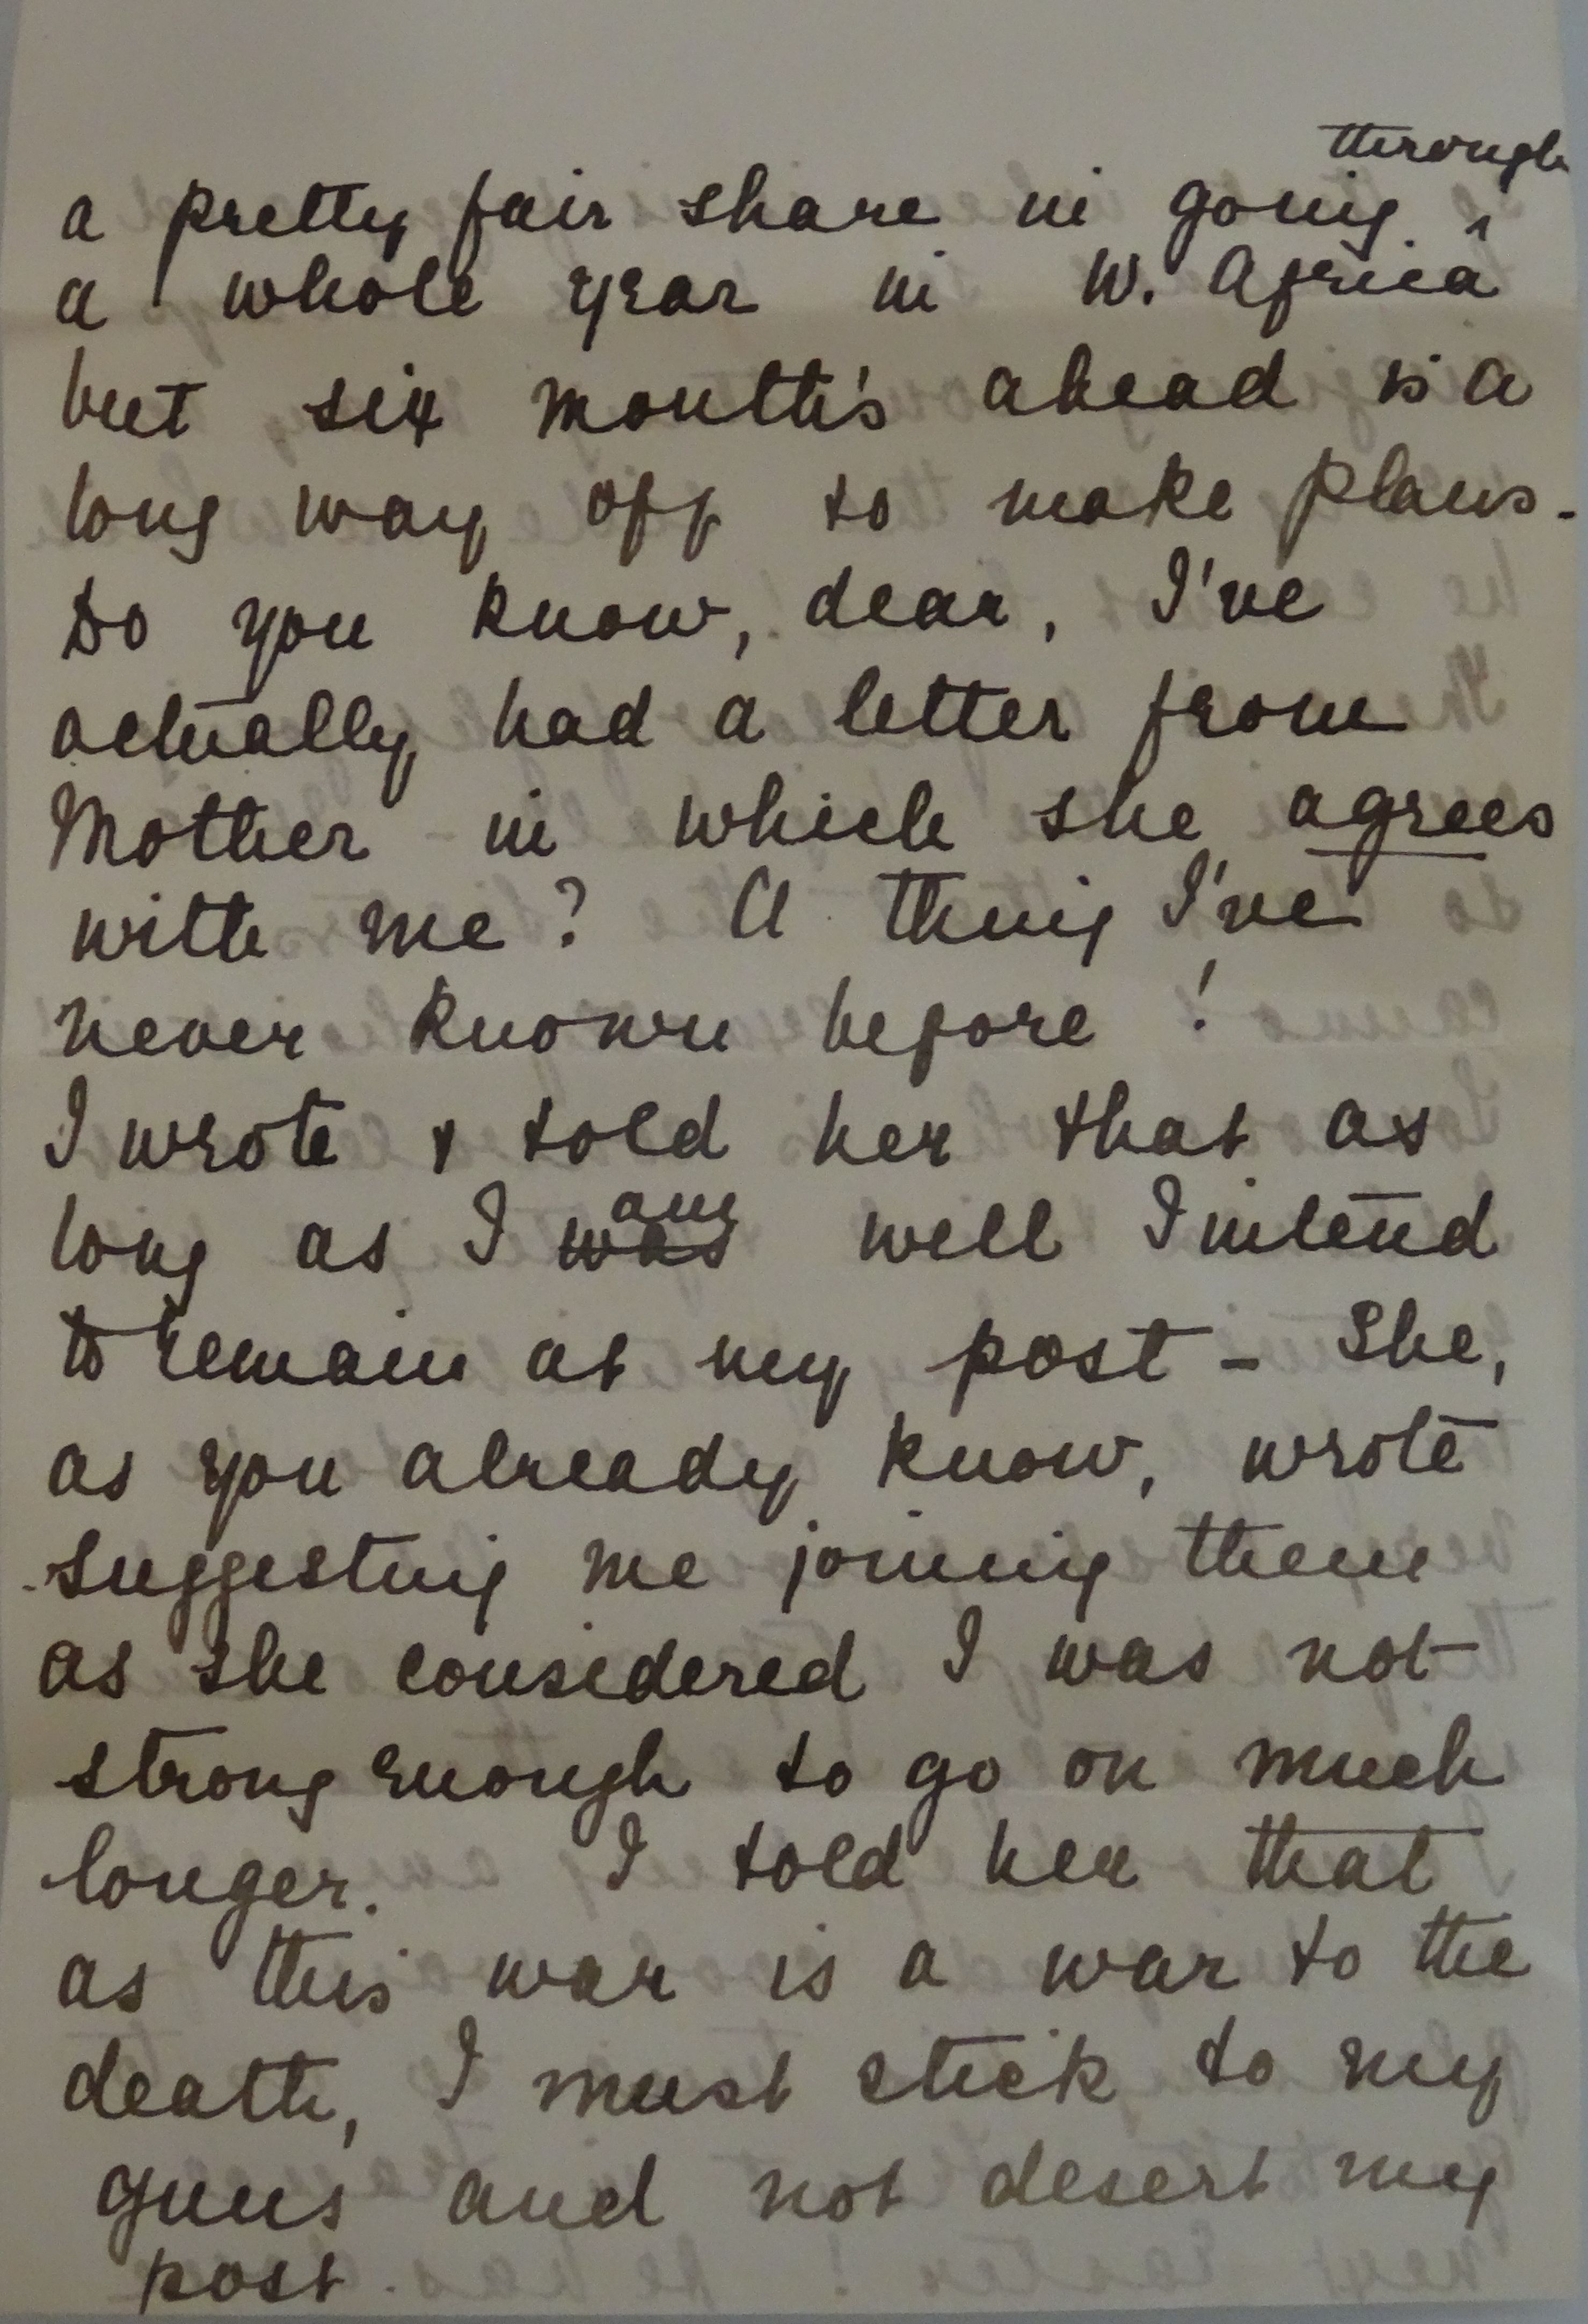 through
a pretty fair share in going ^
a whole year in W. Africa
but six month's ahead is a
long way off to make plans.
Do you know, dear, I've
actually had a letter from
Mother in which she agrees
with me? A thing I've
never known before!
I wrote & told her that as
am
long as I was well I intend
to remain at my post - She,
as you already know, wrote
suggesting me joining them
as she considered I was not
strong enough to go on much
longer. I told her that
as this war is a war to the
death, I must stick to my
guns and not desert my
post.